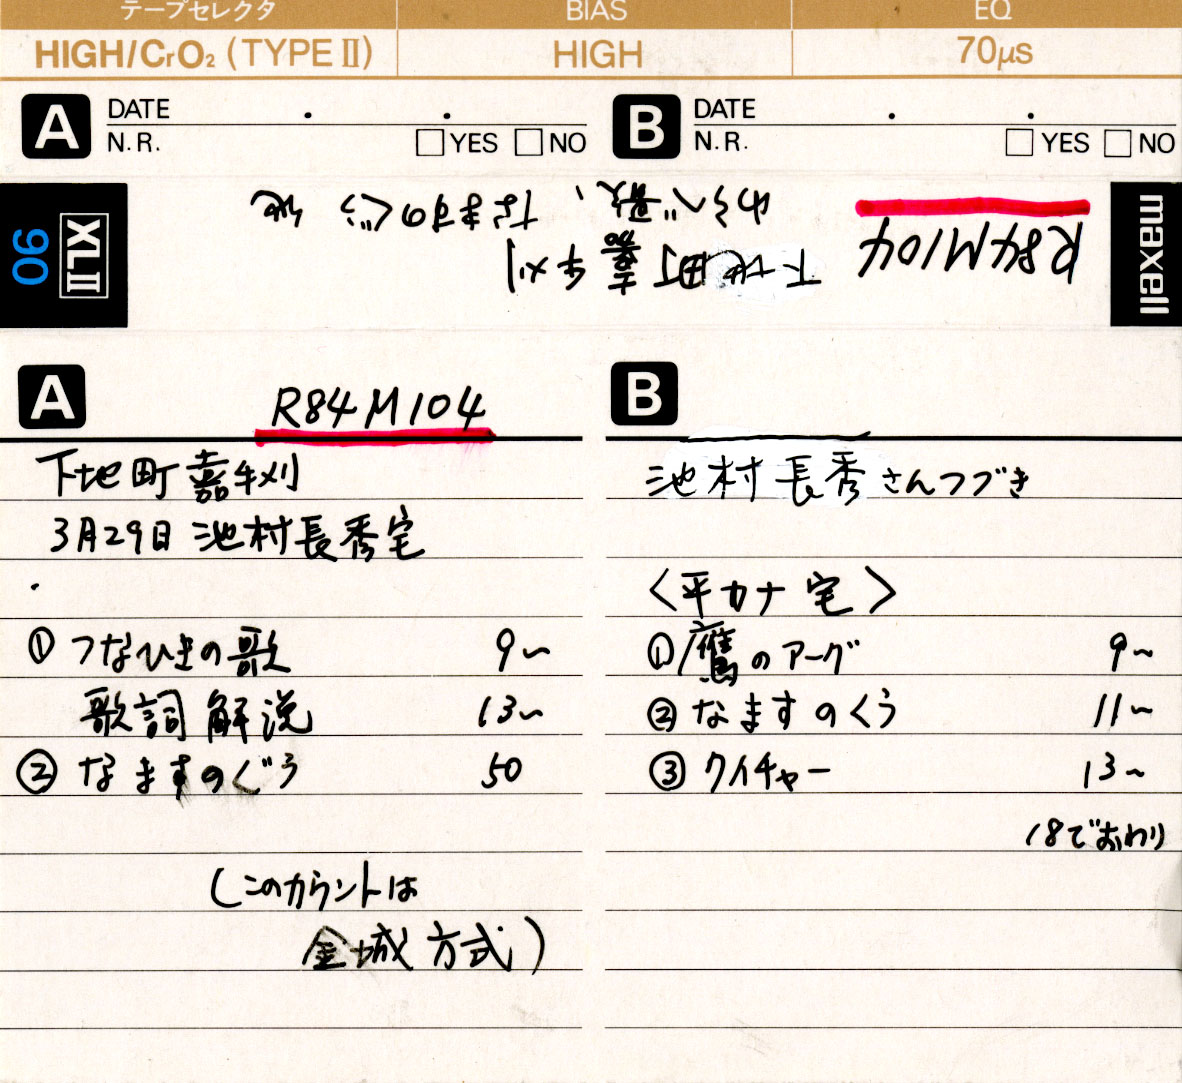 テープセレクタ BIAS EQ
HIGH/CrO₂ (TYPE II) HIGH 70μs
A DATE . .
N.R. □YES □NO
B DATE . .
N.R. □YES □NO
XLII 90
maxell
R84M104
下地町嘉手刈
わらべ歌、なますのぐう 他
A R84M104
下地町嘉手刈
3月29日 池村長秀宅
① つなひきの歌 9〜
歌詞解説 13〜
② なますのぐう 50
(このカウントは
金城方式)
B
池村長秀さんつづき
〈平カナ宅〉
① 鷹のアーグ 9〜
② なますのくう 11〜
③ クイチャー 13〜
18でおわり